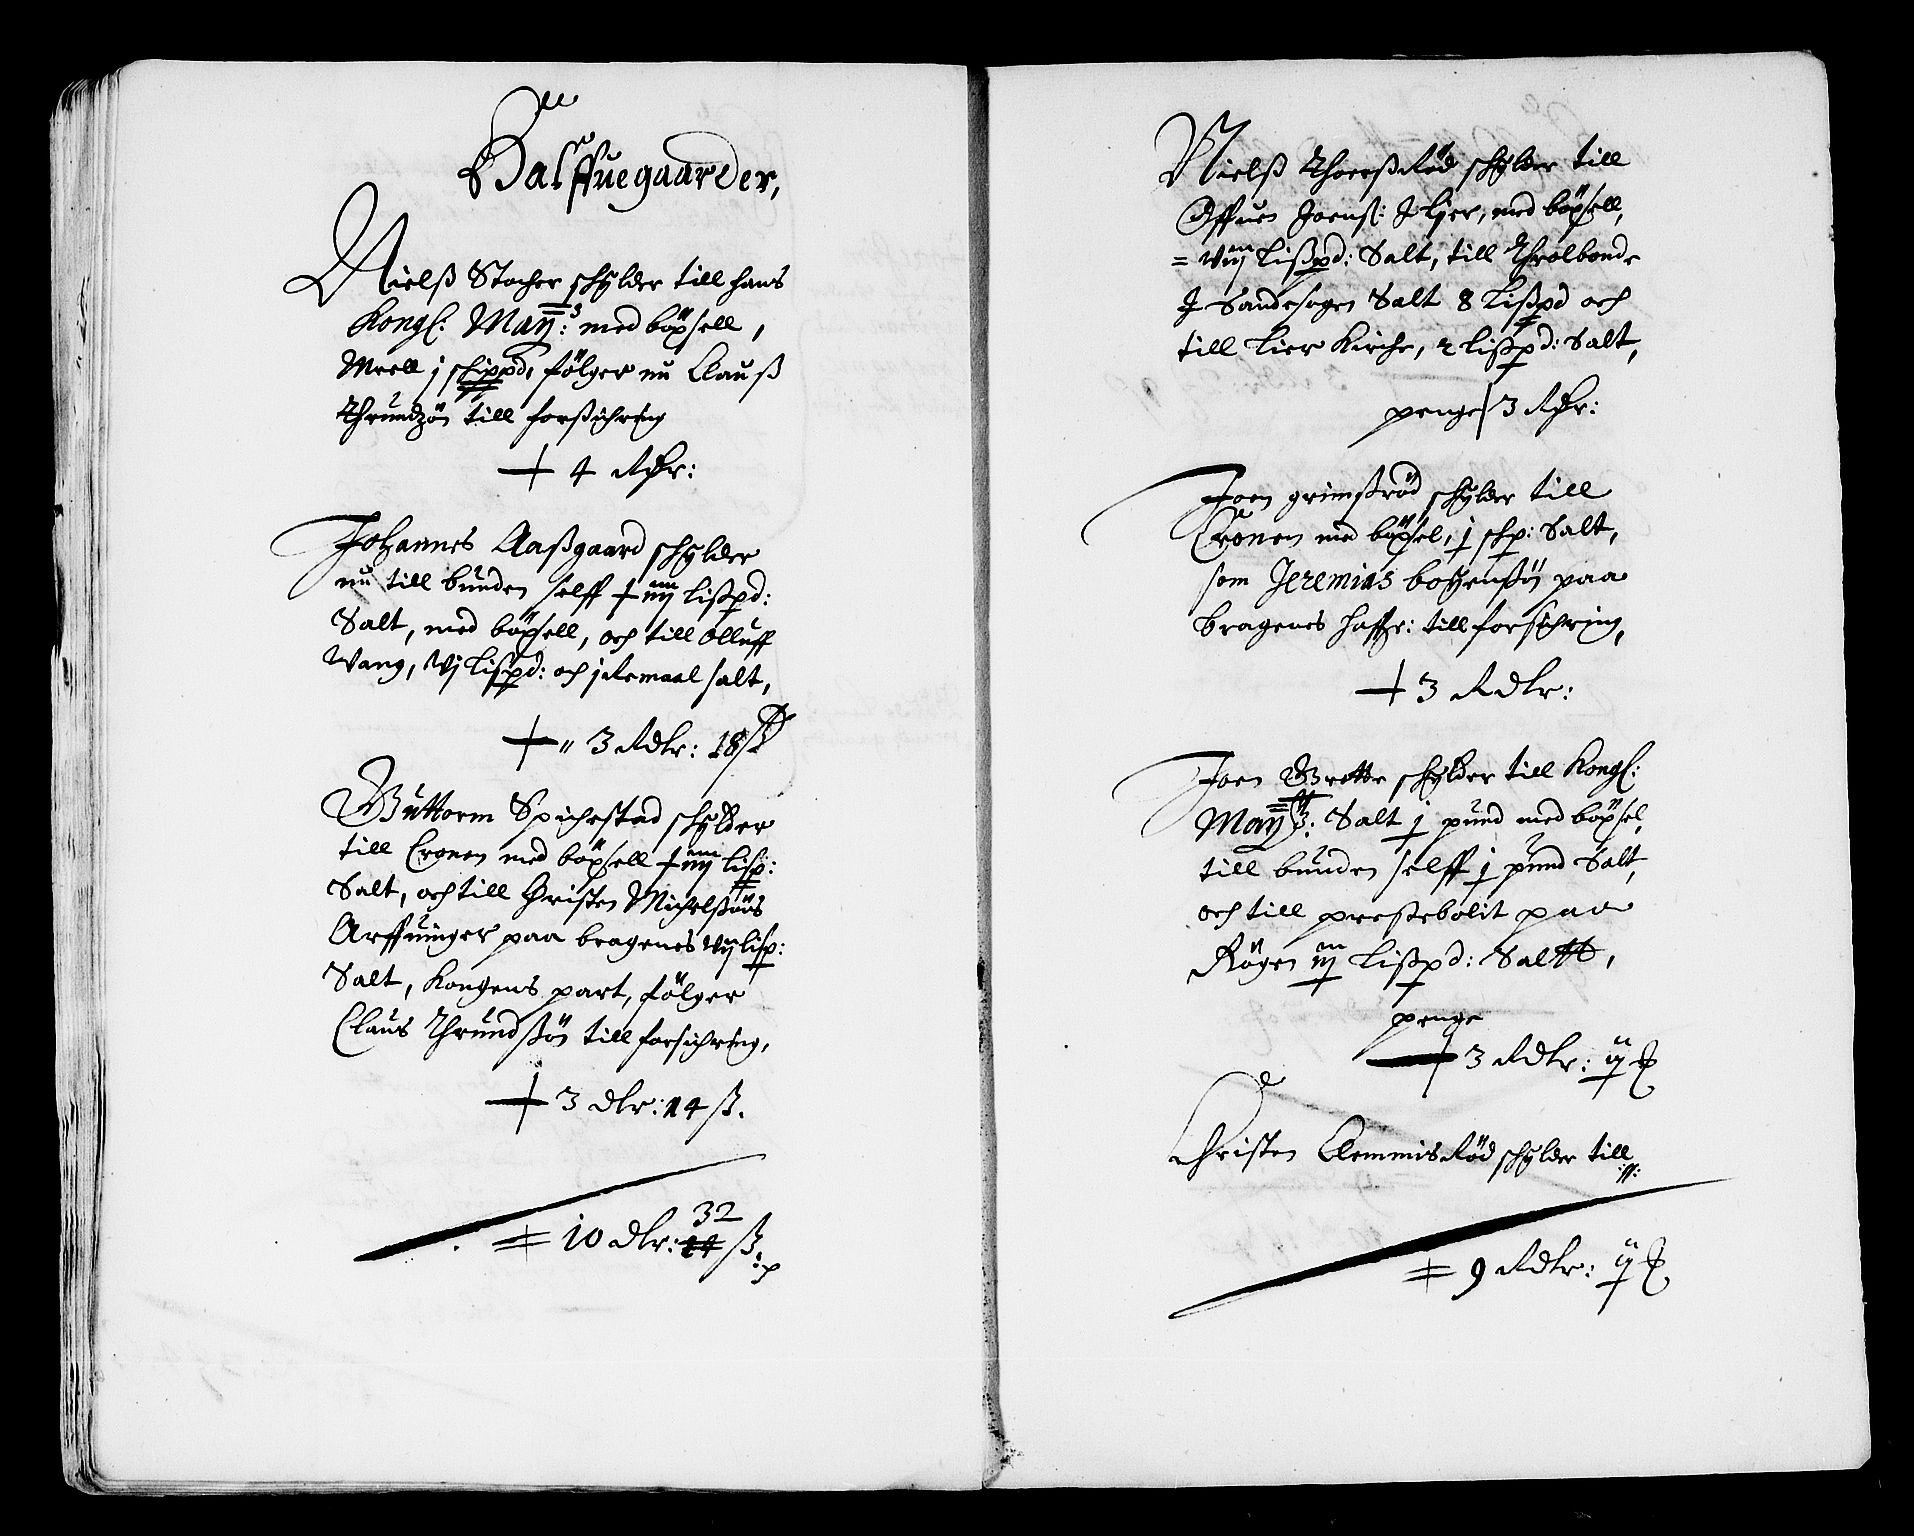 Halffuegaarder,
Nielß Stocher schylder till hans
Kongl: May:ᵗᶻ med böxsell,
Meell j schippd, fölger nu Clauß
Thrundzön till forßichring
4 Rdr:
Johannes Aaßgaard schylder
nu till bunden selff + iiij lißpd:
Salt, med böxsell, och till olluff
Wang, Vj lispd: och j Remaal salt,
" 3 Rdlr: 18 ß
Guttorm Spichestad schylder
till Cronen med böxsell + iiij lisp:
Salt, och till Christen Michelßöns
Arffuinger paa bragenes Vij lisp:
Salt, Kongens part, fölger
Claus Thrundßön till forsichring,
3 dlr: 14 ß.
32
= 10 dlr: 14 ß:
Nielß Thoerßrød schylder till
Offuen Joens: J lier, med böxsell,
= Viij Lißpd: Salt, till Throlbonde
J Sandesogen Salt 8 Lißpd och
till Lier Kirche, 2 lißpd: Salt,
penge 3 Rdr:
Joen grimßröd schylder till
Cronen med böxsel, j schp: Salt,
som Jeremias botzenßön paa
bragenes haffr: till forsichring,
3 Rdlr:
Joen Grette schylder till Kongl:
May:ᵗᶻ: Salt j pund med böxsel,
till bunden selff j pund Salt,
och till prestebolit paa
Røgen iij Lißpd: Saltt,
penge
3 Rdlr: ij
Christen Clemmisrød schylder till
:ff:
= 9 Rdlr: ij